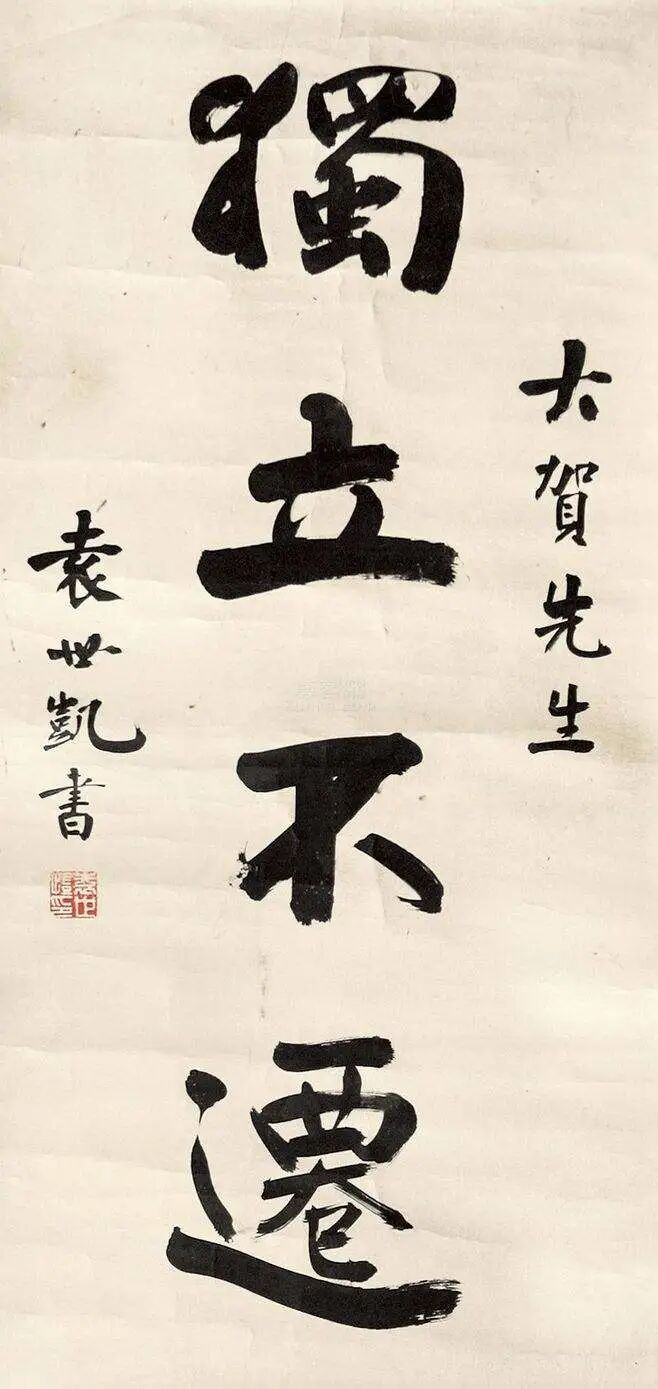 大賀先生
獨立不遷
袁世凱書